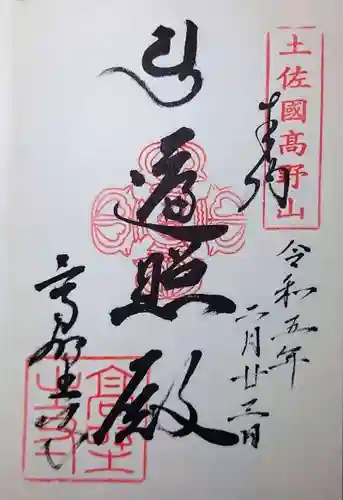 土佐國高野山
奉拝
令和五年
二月廿三日
遍照殿
高野寺
高野寺